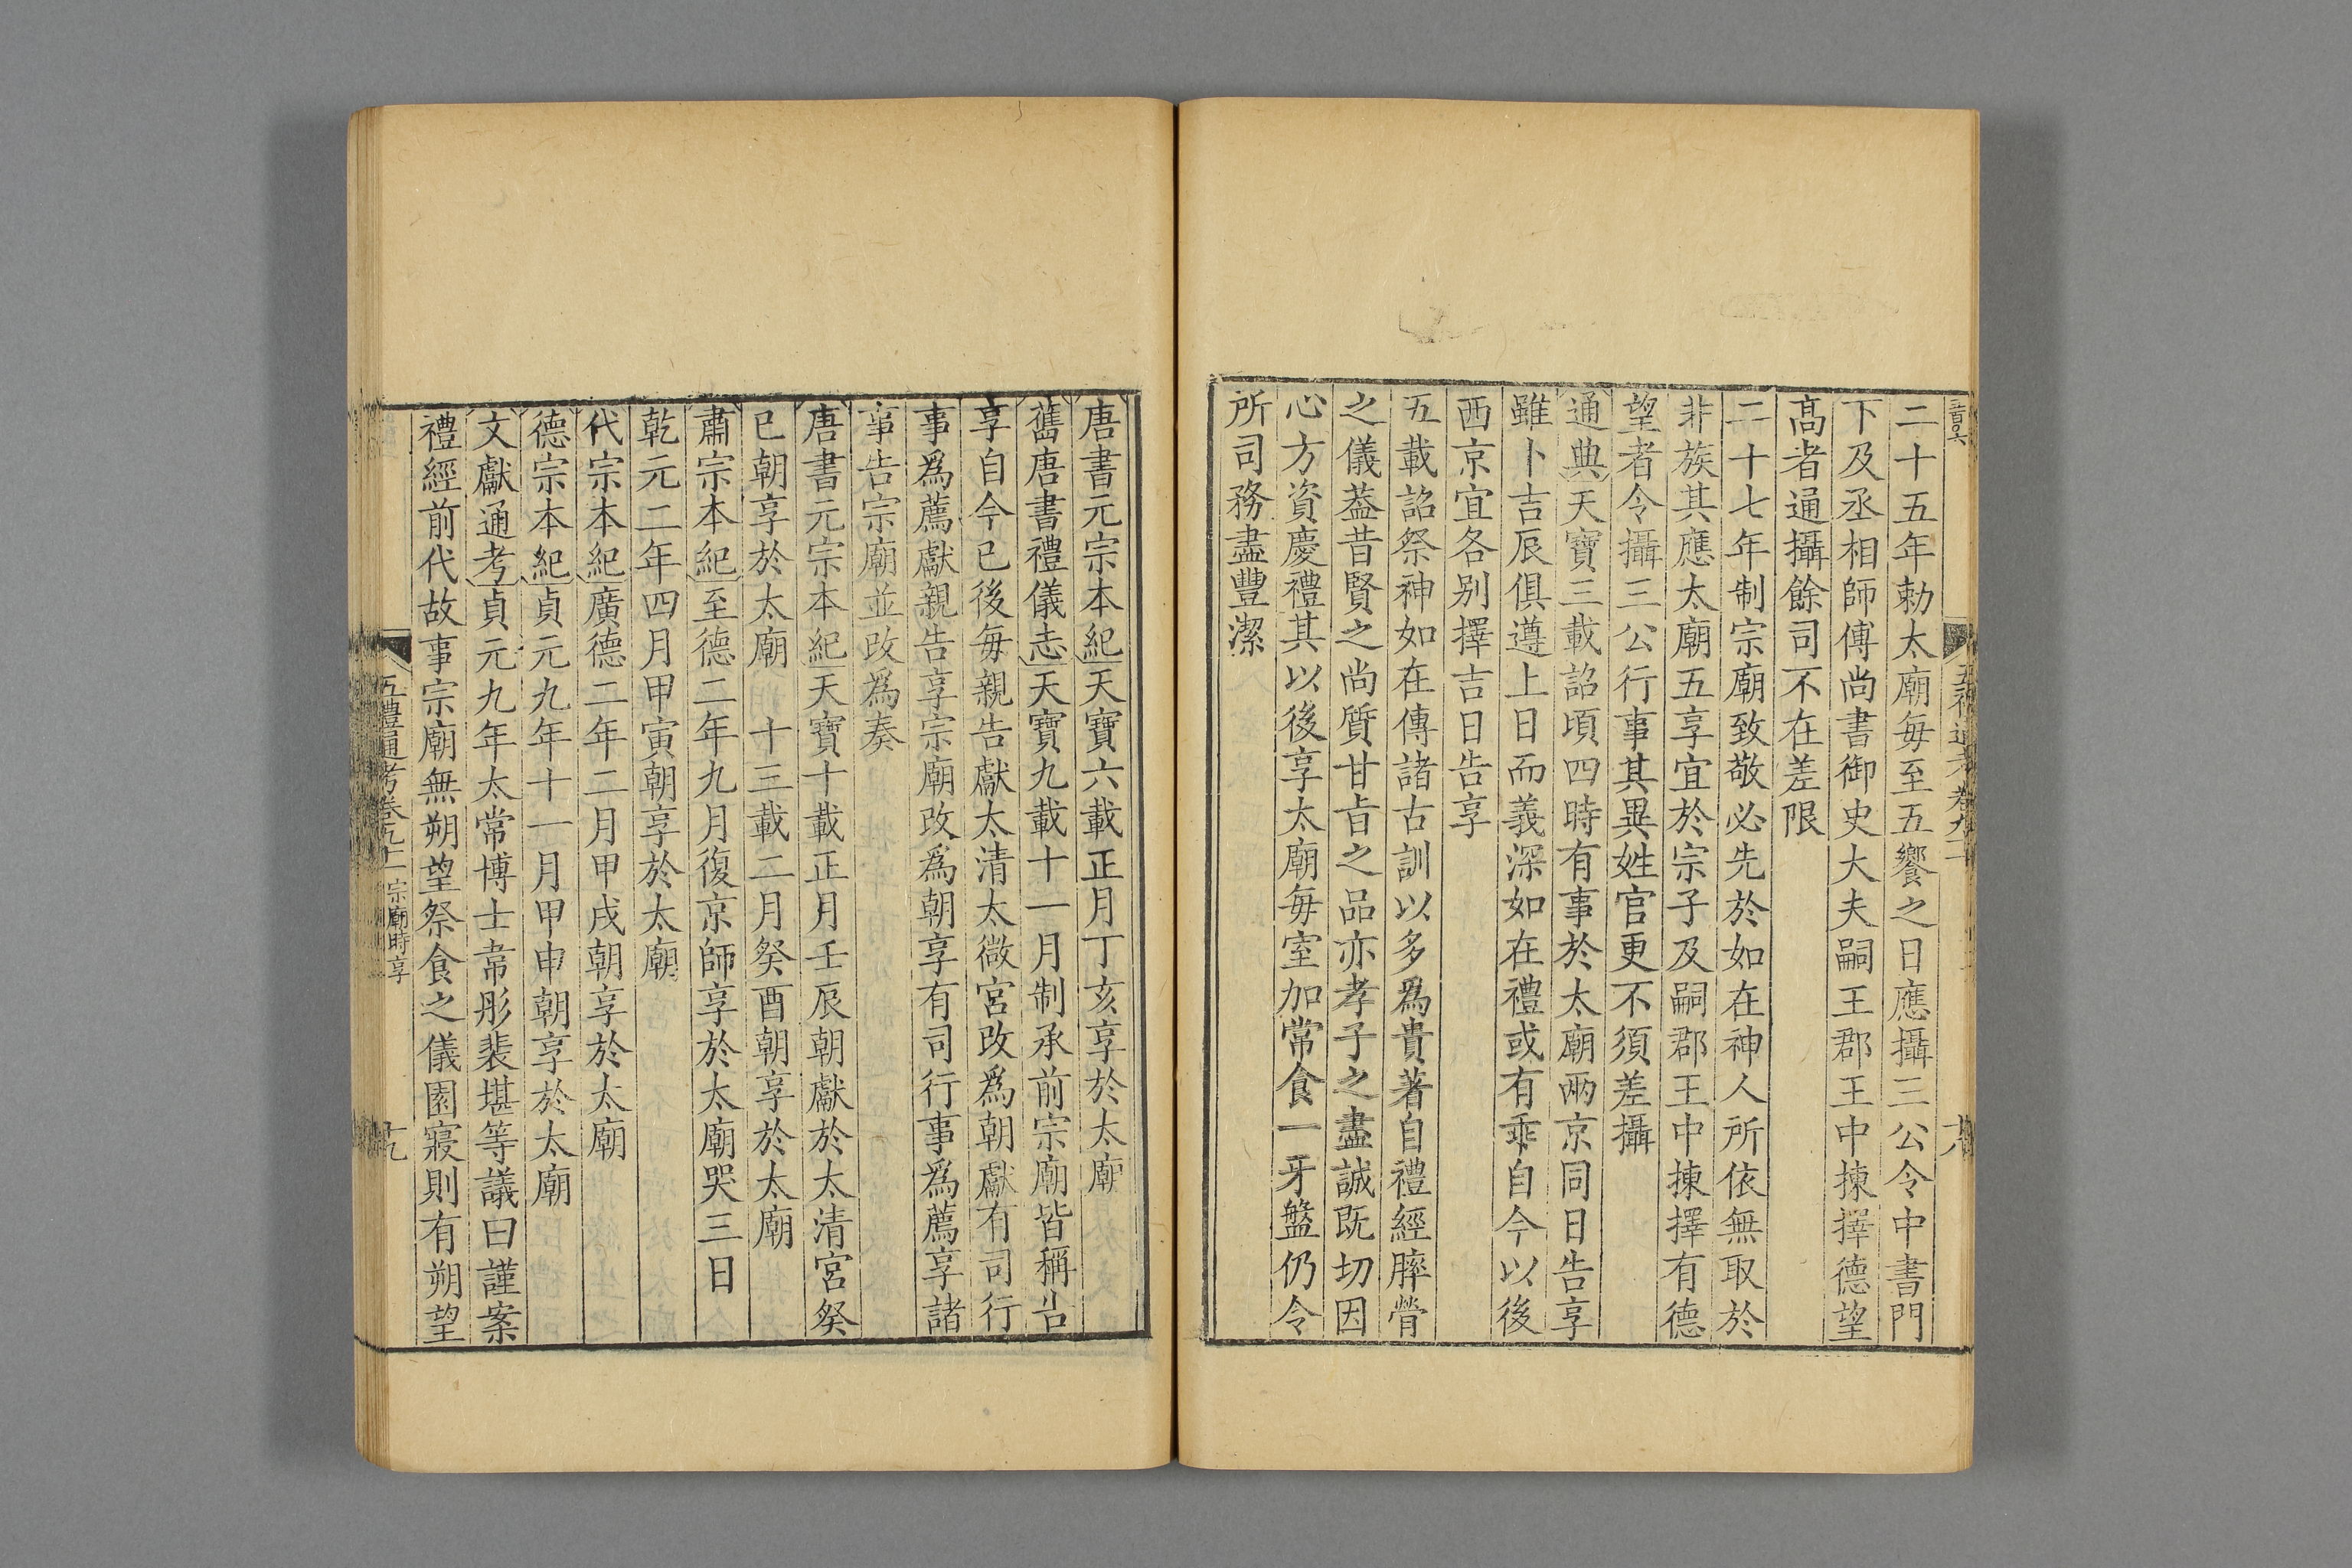 二十五年勅太廟毎至五饗之日應攝三公令中書門
下及丞相師傅尚書御史大夫嗣王郡王中揀擇德望
髙者通攝餘司不在差限
二十七年制宗廟致敬必先於如在神人所依無取於
非族其應太廟五享宜於宗子及嗣郡王中揀擇有德
望者令攝三公行事其異姓官更不須差攝
通典天寶三載詔頃四時有事於太廟兩京同日告享
雖卜吉辰俱遵上日而義深如在禮或有乖自今以後
西京宜各别擇吉日告享
五載詔祭神如在傳諸古訓以多為貴著自禮經膟膋
之儀葢昔賢之尚質甘旨之品亦孝子之盡誠既切因
心方資慶禮其以後享太廟毎室加常食一牙盤仍令
所司務盡豐潔
唐書元宗本紀天寶六載正月丁亥享於太廟
舊唐書禮儀志天寶九載十一月制承前宗廟皆稱告
享自今已後毎親告獻太清太微宮改為朝獻有司行
事為薦獻親告享宗廟改為朝享有司行事為薦享諸
事告宗廟並改為奏
唐書元宗本紀天寶十載正月壬辰朝獻於太清宮癸
巳朝享於太廟　十三載二月癸酉朝享於太廟
肅宗本紀至德二年九月復京師享於太廟哭三日
乾元二年四月甲寅朝享於太廟
代宗本紀廣德二年二月甲戌朝享於太廟
德宗本紀貞元九年十一月甲申朝享於太廟
文獻通考貞元九年太常博士韋彤裴堪等議曰謹案
禮經前代故事宗廟無朔望祭食之儀園寢則有朔望
五禮通考卷九十　宗廟時享　十九